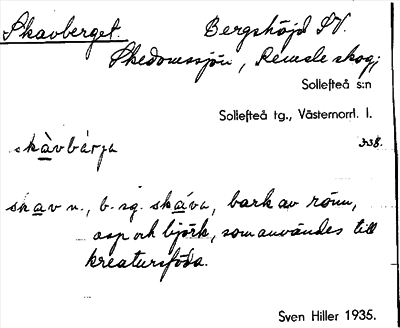 Skavberget. Bergshöjd SV.
Skedomssjön, Remsle skog;
Sollefteå s:n
Sollefteå tg., Västernorrl. l.
skàvbárja 338.
skav n., b. sg. skáva, bark av rönn,
asp och björk, som användes till
kreatursföda.
Sven Hiller 1935.